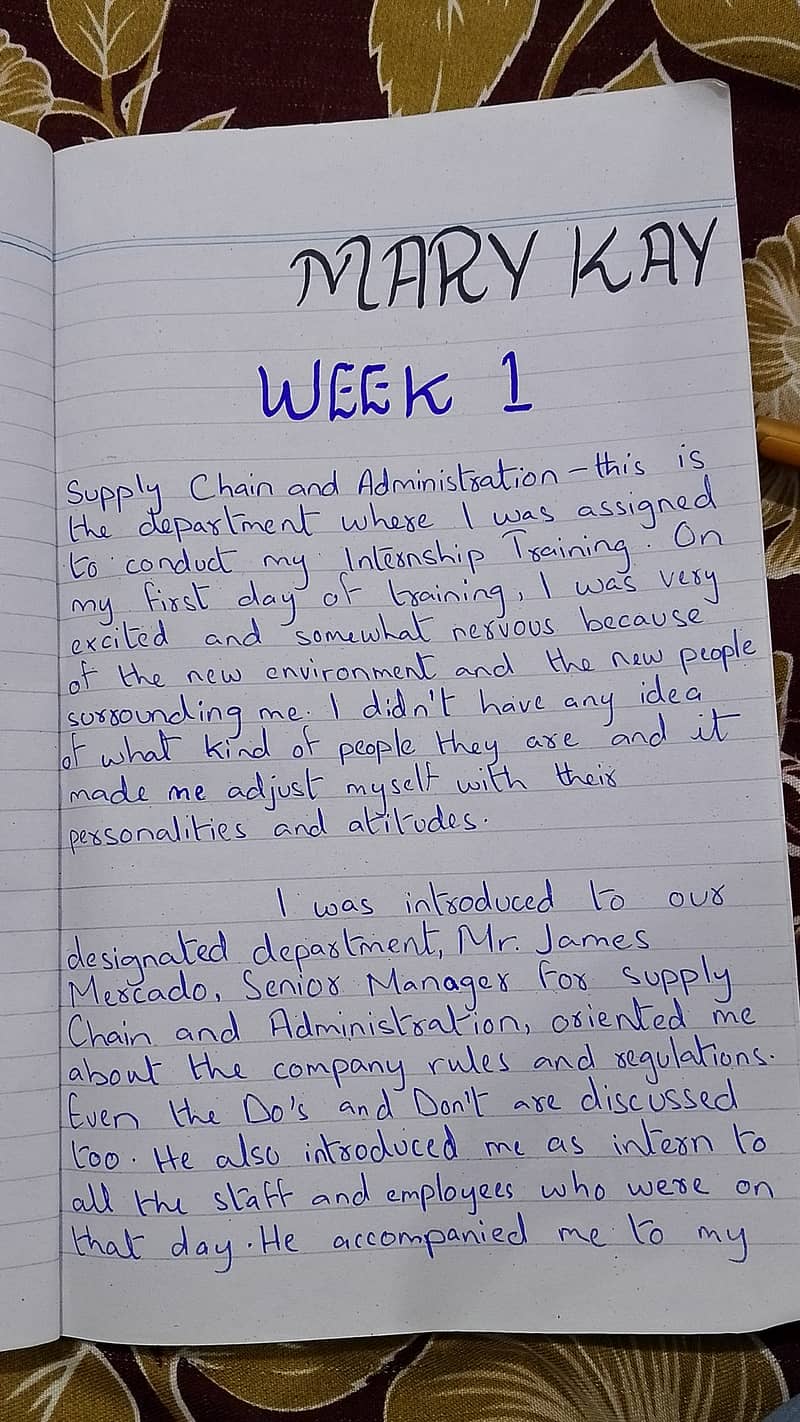 MARY KAY
WEEK 1
Supply Chain and Administration - this is
the department where I was assigned
to conduct my Internship Training. On
my first day of training, I was very
excited and somewhat nervous because
of the new environment and the new people
surrounding me. I didn't have any idea
of what kind of people they are and it
made me adjust myself with their
personalities and atitudes.
I was introduced to our
designated department, Mr. James
Mercado, Senior Manager for Supply
Chain and Administration, oriented me
about the company rules and regulations.
Even the Do's and Don't are discussed
too. He also introduced me as intern to
all the staff and employees who were on
that day. He accompanied me to my